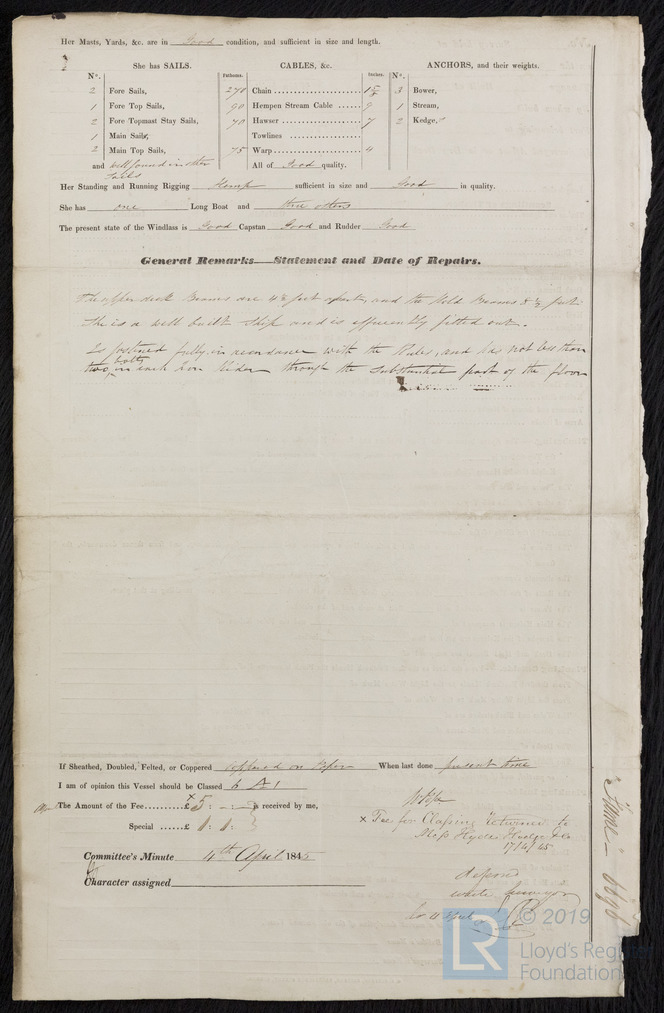 Her Masts, Yards, &c. are in Good condition, and sufficient in size and length.
She has SAILS.
CABLES, &c.
ANCHORS, and their weights.
N°.
Fathoms.
Inches.
N°.
2 Fore Sails, 270 Chain 3 Bower,
1 Fore Top Sails, 90 Hempen Stream Cable 9 1 Stream,
2 Fore Topmast Stay Sails, 70 Hawser 7 2 Kedge,
1 Main Sails, Towlines
2 Main Top Sails, 75 Warp 4
and well found in other Sails All of Good quality.
Her Standing and Running Rigging Hemp sufficient in size and Good in quality.
She has one Long Boat and three others
The present state of the Windlass is Good Capstan Good and Rudder Good
General Remarks—Statement and Date of Repairs.
The upper deck Beams are 4½ feet apart, and the Hold Beams 8½ feet
She is a well built Ship and is efficiently fitted out.
Is fastened fully in accordance with the Rules, and has not less than
two bolts in each Iron Rider through the substantial part of the floor
If Sheathed, Doubled, Felted, or Coppered Coppered on When last done present time
I am of opinion this Vessel should be Classed A1
The Amount of the Fee £ 5 : - : - is received by me,
Special £ 1 : 1 :
x Fee for Classing returned to
17/4/45
Committee's Minute 4th April 1845
Character assigned
© 2019
LR
Lloyd's Register
Foundation